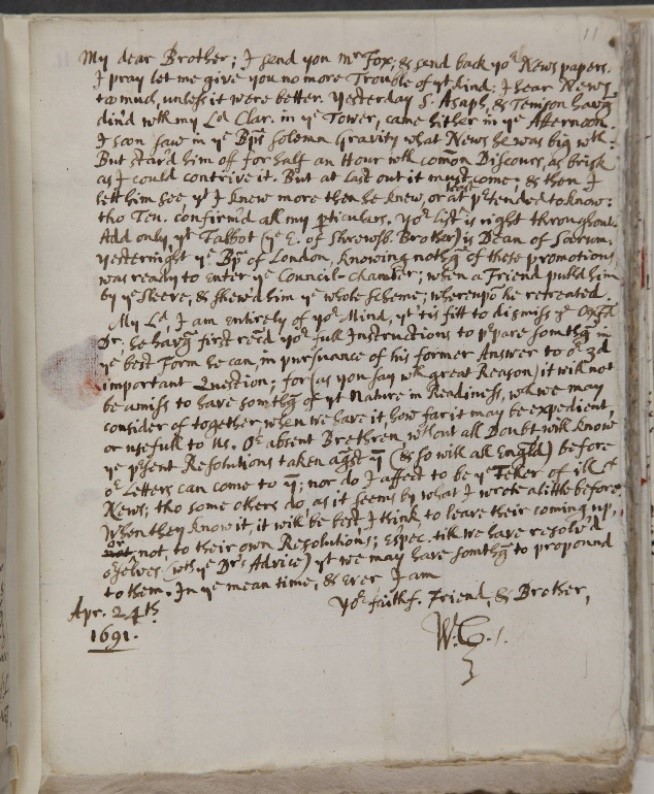 11
My dear Brother; I send you Mr Fox, & send back yor News papers.
I pray let me give you no more Trouble of yt kind: I hear News
too much, unless it were better. Yesterday S. Asaph, & Tenison havg
din'd wth my Ld Clar. in ye Tower, came hither in ye Afternoon.
I soon saw in ye Bps solemn Gravity what News he was big wth:
But stav'd him off for half an Hour wth comon Discours, as brisk
as I could contrive it. But at last out it must come; & then I
lett him see yt I knew more then he knew, or at least prtended to know:
tho Ten. confirm'd all my pticulars. Yor List is right throughout.
Add only, yt Talbot (ye E. of Shrewsb. Brother) is Dean of Sarum.
Yesternight ye Bp of London, knowing nothg of these promotions,
was ready to enter ye Council-chamber; when a Friend pulld him
by ye sleeve, & shew'd him ye whole scheme; whereupō he retreated.
My Ld, I am entirely of yor Mind, yt 'tis fitt to dismiss ye Oxfd
Dr. he havg first recd yor full Instructions to prpare somthg in
ye best Form he can, in pursuance of his former Answer to or 3d
important Question; for (as you say wth great Reason) it will not
be amiss to have somthg of yt Nature in Readiness, wch we may
consider of together, when we have it, how far it may be expedient,
or usefull to us. Or absent Brethren, wthout all Doubt will know
ye prsent Resolutions taken agst ym (& so will all Engld) before
or Letters can come to ym; nor do I affect to be ye Teller of ill
News; tho some others do, as it seems by what I wrote a little before.
When they know it, it will be best, I think, to leave their coming up,
or not, to their own Resolutions; espec. till we have resolv'd
orselves (wth ye Drs Advice) yt we may have somthg to propound
to them. In ye mean time, & ever I am
Yor faithf. Friend, & Brother,
Apr. 24th
W. C.
1691.